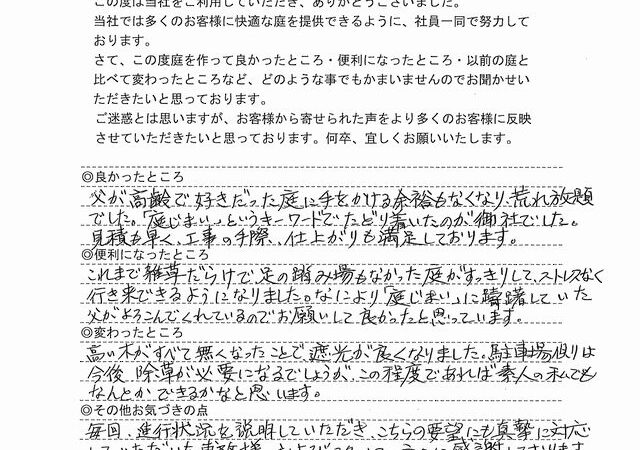 この度は当社をご利用していただき、ありがとうございました。
当社では多くのお客様に快適な庭を提供できるように、社員一同で努力して
おります。
さて、この度庭を作って良かったところ・便利になったところ・以前の庭と
比べて変わったところなど、どのような事でもかまいませんのでお聞かせい
ただきたいと思っております。
ご迷惑とは思いますが、お客様から寄せられた声をより多くのお客様に反映
させていただきたいと思っております。何卒、宜しくお願いいたします。
◎良かったところ
父が高齢で好きだった庭に手をかける余裕もなくなり、荒れ放題
でした。「庭じまい」というキーワードでたどり着いたのが御社でした。
見積も早く、工事の手際、仕上がりも満足しております。
◎便利になったところ
これまで雑草だらけで足の踏み場もなかった庭がすっきりして、ストレスなく
行き来できるようになりました。なにより「庭じまい」に躊躇していた
父がよろこんでくれているのでお願いして良かったと思っています。
◎変わったところ
高い木がすべて無くなったことで遮光が良くなりました。駐車場側は
今後、除草が必要になるでしょうが、この程度であれば素人の私でも
なんとかできるかなと思います。
◎その他お気づきの点
毎回、進行状況を説明していただき、こちらの要望にも真摯に対応
していただいた